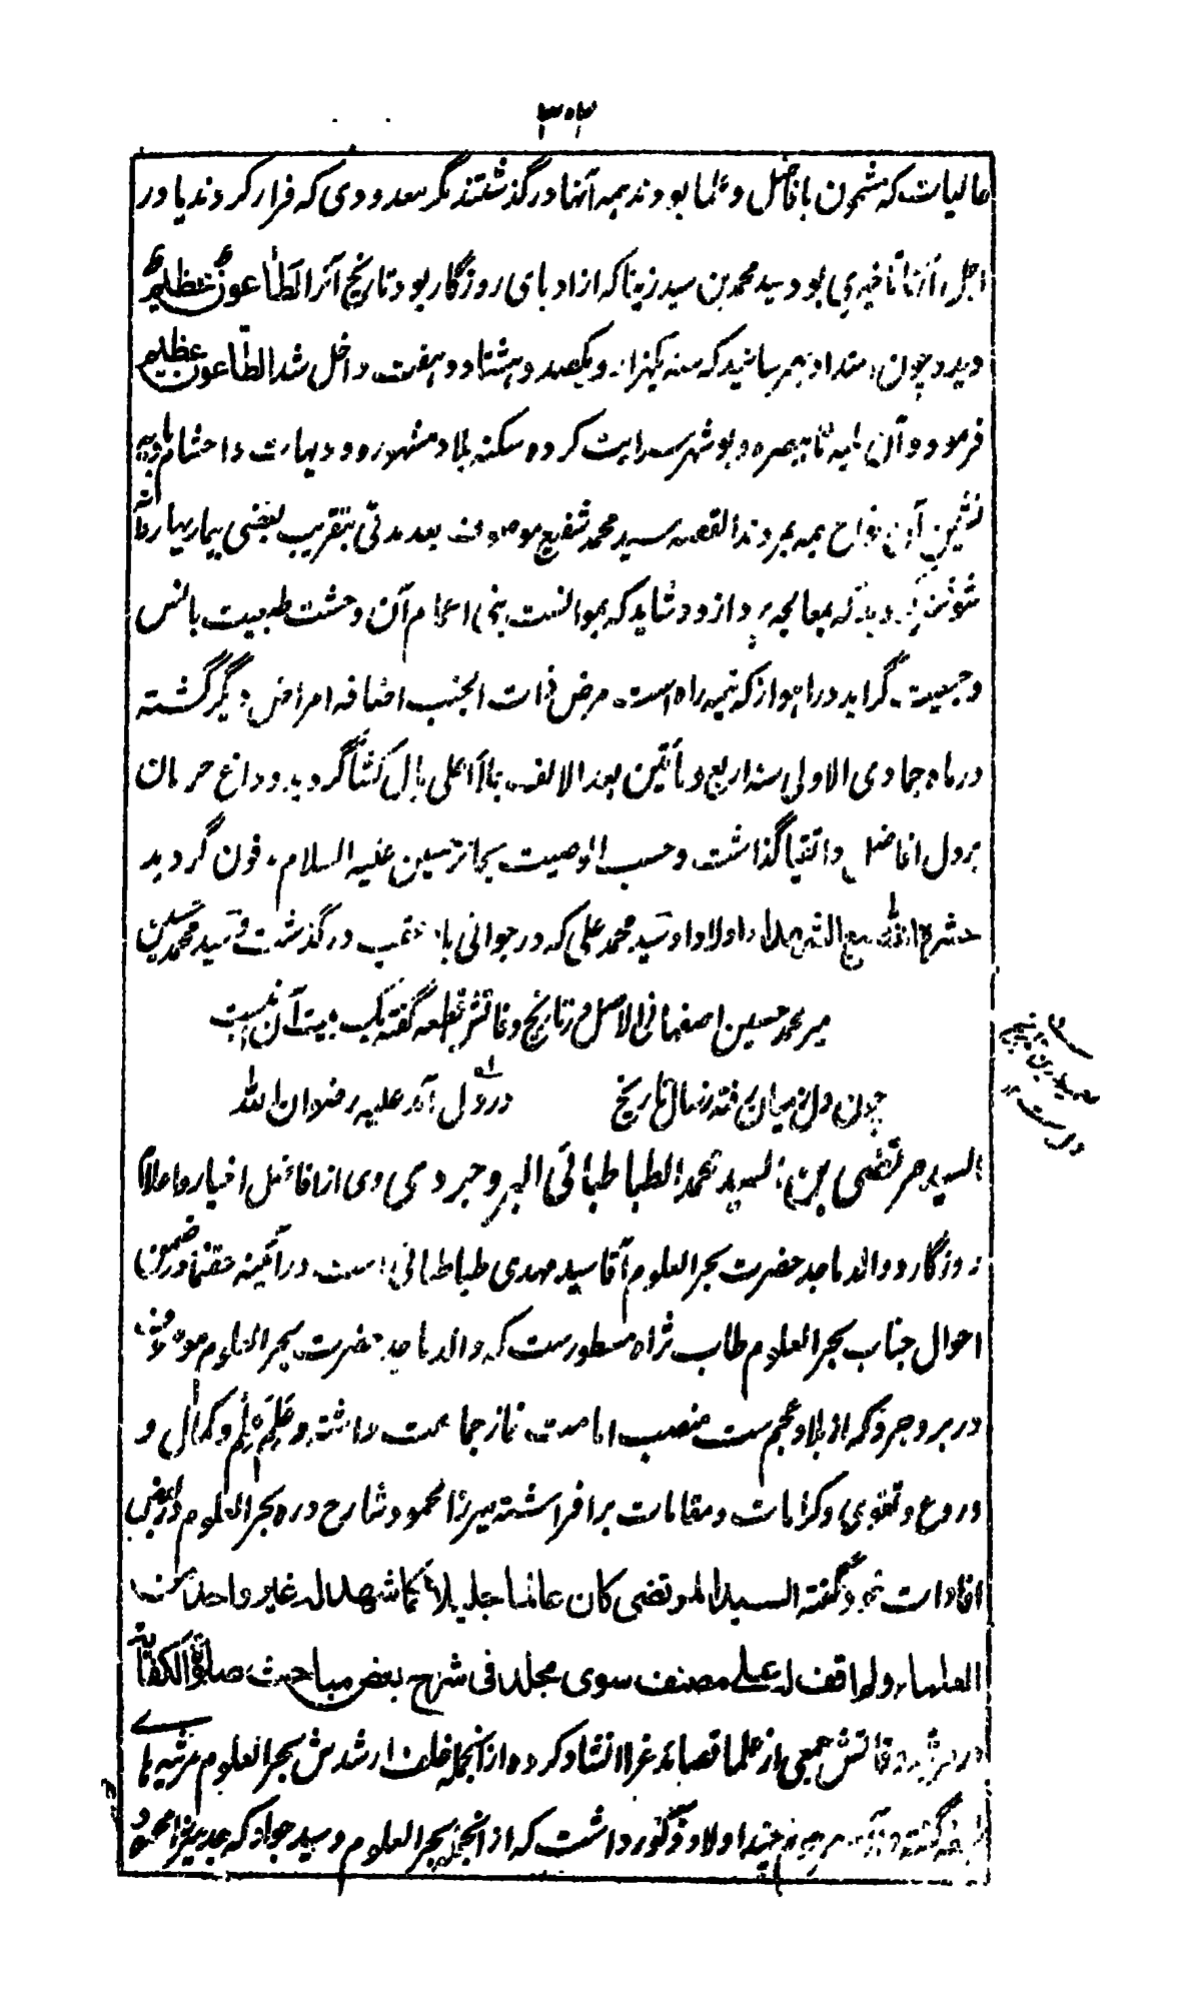 ۳۰۳
عالیات که مشحون بافاضل و علما بودند همه آنها در گذشتند مگر معدودی که فرار کردند یا در
اجل آنها تاخیری بود سید محمد بن سید زینا که از ادبای روزگار بود تاریخ آنرا الطاعون عظیم
دید و چون امتداد بهم رسانید که سنه یکهزار و یکصد و هشتاد و هفت داخل شد الطاعون عظیم
فرمود و آن بلیه تا ببصره و بوشهر سرایت کرده سکنه بلاد مشهوره و دیهات و احشام بادیه
نشین آن نواح همه بمردند القصه سید محمد شفیع موصوف بعد مدتی بتقریب بعضی بیماریها روانه
شوشتر گردید که بمعالجه پردازد و شاید که بموانست بنی اعمام آن وحشت طبیعت بانس
و جمعیت گراید در اهواز که نیمه راه است مرض ذات الجنب اضافه امراض دیگر گشته
در ماه جمادی الاولی سنه اربع و مأتین بعد الالف بملأ اعلی بال کشا گردید و داغ حرمان
بر دل افاضل و اتقیا گذاشت و حسب الوصیت بحائر حسین علیه السلام مدفون گردید
حشره الله مع الشهداء اولاد او سید محمد علی که در جوانی بلا عقب در گذشت و سید محمد حسین
میر محمد حسین اصفهانی الاصل در تاریخ وفاتش قطعه گفته یک بیت آن اینست
چون دل از میان رفته ز سال تاریخ درد دل آمد علیه رضوان الله
السید مرتضی بن السید محمد الطباطبائی البروجردی وی از افاضل اخیار و اعلام
روزگار و والد ماجد حضرت بحر العلوم آقا سید مهدی طباطبائی است در آئینه حقنما در ضمن
احوال جناب بحر العلوم طاب ثراه مسطورست که والد ماجد حضرت بحر العلوم
در بروجرد که از بلاد عجم ست منصب امامت نماز جماعت داشته و علم علم و کمال و
و ورع و تقوی و کرامات و مقامات برافراشته میرزا محمود شارح دره بحر العلوم در بعض
افادات خود گفته السید المرتضی کان عالما جلیلا کما شهد له غیر واحد من
العلماء و لم اقف له علی مصنف سوی مجلد فی شرح بعض مباحث صلوة الکفایة
در مرثیه وفاتش جمعی از علما قصائد غرا انشاد کرده از آنجمله خلف ارشدش بحر العلوم مرثیه ها
گفته چند اولاد ذکور داشت که از آنجمله بحر العلوم و سید جواد که جد میرزا محمود